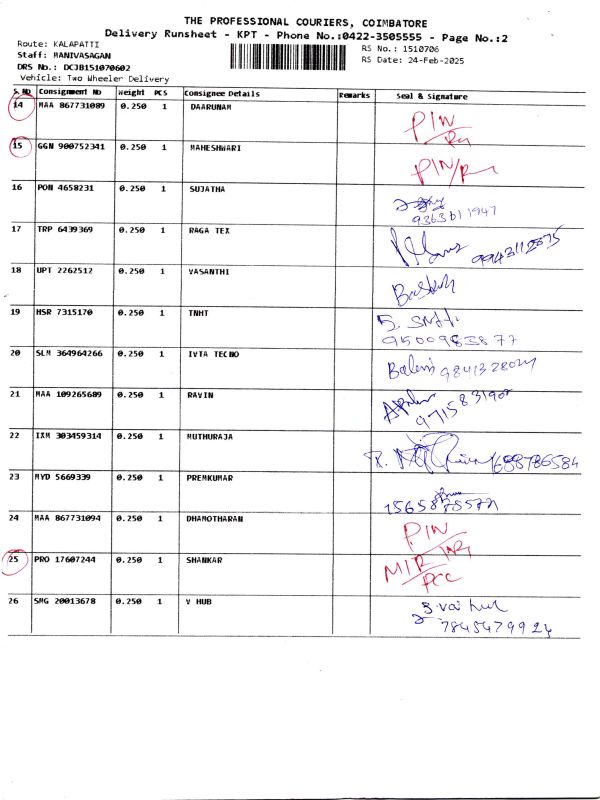 THE PROFESSIONAL COURIERS, COIMBATORE
Delivery Runsheet - KPT - Phone No.:0422-3505555 - Page No.:2
Route: KALAPATTI
Staff: MANIVASAGAN
DRS No.: DCJB151070602
Vehicle: Two Wheeler Delivery
RS No.: 1510706
RS Date: 24-Feb-2025
S.No Consignment No Weight PCS Consignee Details Remarks Seal & Signature
14 MAA 867731089 0.250 1 DAARUNAM PIN
15 GGN 900752341 0.250 1 MAHESHWARI PIN
16 PON 4658231 0.250 1 SUJATHA 9363611947
17 TRP 6439369 0.250 1 RAGA TEX 9943112875
18 UPT 2262512 0.250 1 VASANTHI
19 HSR 7315170 0.250 1 TNHT 9500983877
20 SLM 364964266 0.250 1 IVTA TECNO 9841328024
21 MAA 109265689 0.250 1 RAVIN
22 IXM 303459314 0.250 1 MUTHURAJA
23 MYD 5669339 0.250 1 PREMKUMAR
24 MAA 867731094 0.250 1 DHAMOTHARAN PIN
25 PRO 17607244 0.250 1 SHANKAR MIR
26 SMG 20013678 0.250 1 V HUB 7845479924